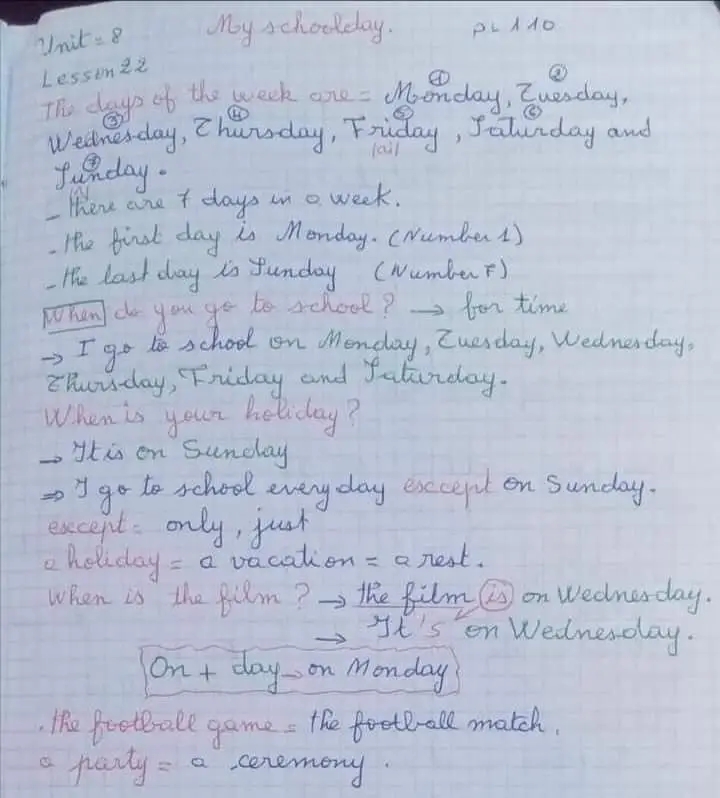 My schoolday. PL 110
Unit = 8
Lesson 22
The days of the week are = Monday, Tuesday,
① ②
Wednesday, Thursday, Friday, Saturday and
③ ④ ⑤ ⑥
/ai/
Sunday.
⑦
/ʌ/
- There are 7 days in a week.
- the first day is Monday. (Number 1)
- the last day is Sunday (Number 7)
When do you go to school? → for time
→ I go to school on Monday, Tuesday, Wednesday,
Thursday, Friday and Saturday.
When is your holiday?
→ It is on Sunday
⇒ I go to school everyday esccept on Sunday.
esccept = only, just
a holiday = a vacation = a rest.
When is the film? → the film is on Wednesday.
→ It's on Wednesday.
On + day → on Monday
. the football game = the football match.
a party = a ceremony.